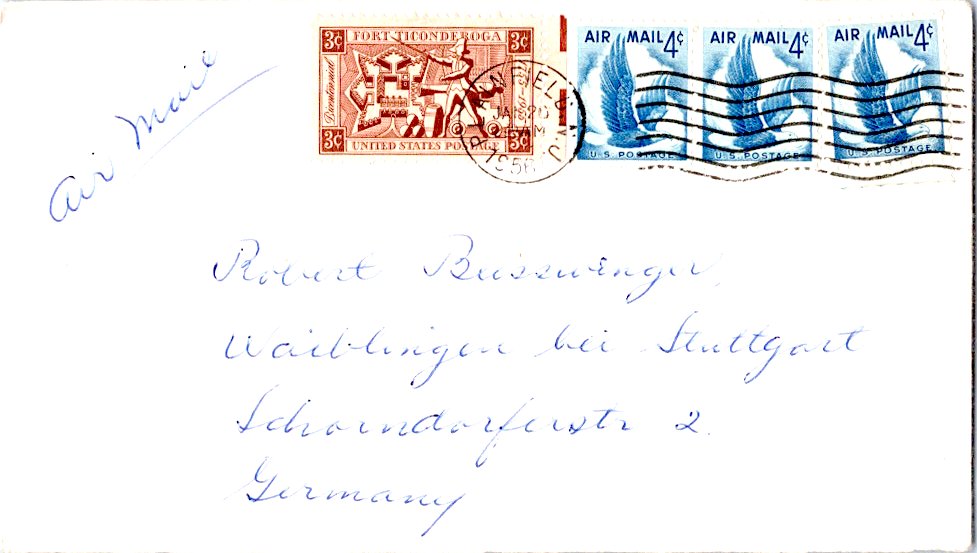 3¢ FORT TICONDEROGA 3¢
Bicentennial
3¢ UNITED STATES POSTAGE 3¢
AIR MAIL 4¢
U.S. POSTAGE
AIR MAIL 4¢
U.S. POSTAGE
AIR MAIL 4¢
U.S. POSTAGE
PLAINFIELD N.J.
JAN 20
AM
1956
Air Mail
Robert
Waiblingen bei Stuttgart
Schorndorferstr 2.
Germany